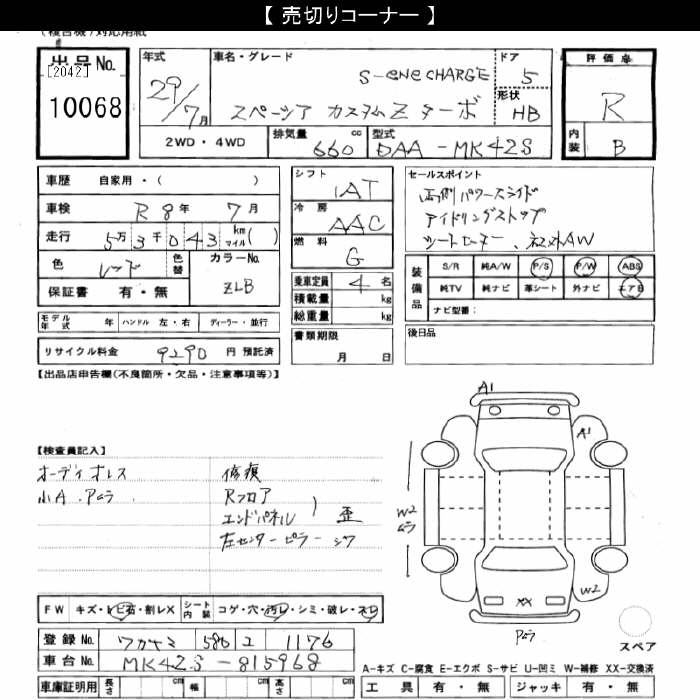 【 売切りコーナー 】
(複合機)対応用紙
出品No.
[2042]
10068
年式
29/7月
車名・グレード
S-ene CHARGE
スペーシア カスタムZ ターボ
ドア
5
形状
HB
評価点
R
内装
B
2WD・4WD
排気量 660 cc
型式 DAA-MK42S
車歴 自家用・( )
車検 R8年 7月
走行 5万3千043 km マイル( )
色 レッド 色替 カラーNo. ZLB
保証書 有・無
シフト IAT
冷房 AAC
燃料 G
乗車定員 4名
積載量 kg
総重量 kg
書類期限 月 日
セールスポイント
両側パワースライド
アイドリングストップ
シートヒーター、社外AW
装備品
S/R 純A/W P/S P/W ABS
純TV 純ナビ 革シート 外ナビ エアB
ナビ型番:
後日品
モデル年式 年 ハンドル 左・右 ディーラー・並行
リサイクル料金 9290 円 預託済
【出品店申告欄(不良箇所・欠品・注意事項等)】
【検査員記入】
オーディオレス
小A.Pムラ
修復
Rフロア
エンドパネル ) 歪
左センターピラー シワ
A1
A1
W2
ムラ
W2
XX
Pムラ
スペア
FW キズ・トビ石・割レX シート内装 コゲ・穴・汚レ・シミ・破レ・スレ
登録No. ワカヤマ 580 ユ 1176
車台No. MK42S-815968
車庫証明用 長さ 幅 高さ
A-キズ C-腐食 E-エクボ S-サビ U-凹ミ W-補修 XX-交換済
工具 有・無 ジャッキ 有・無